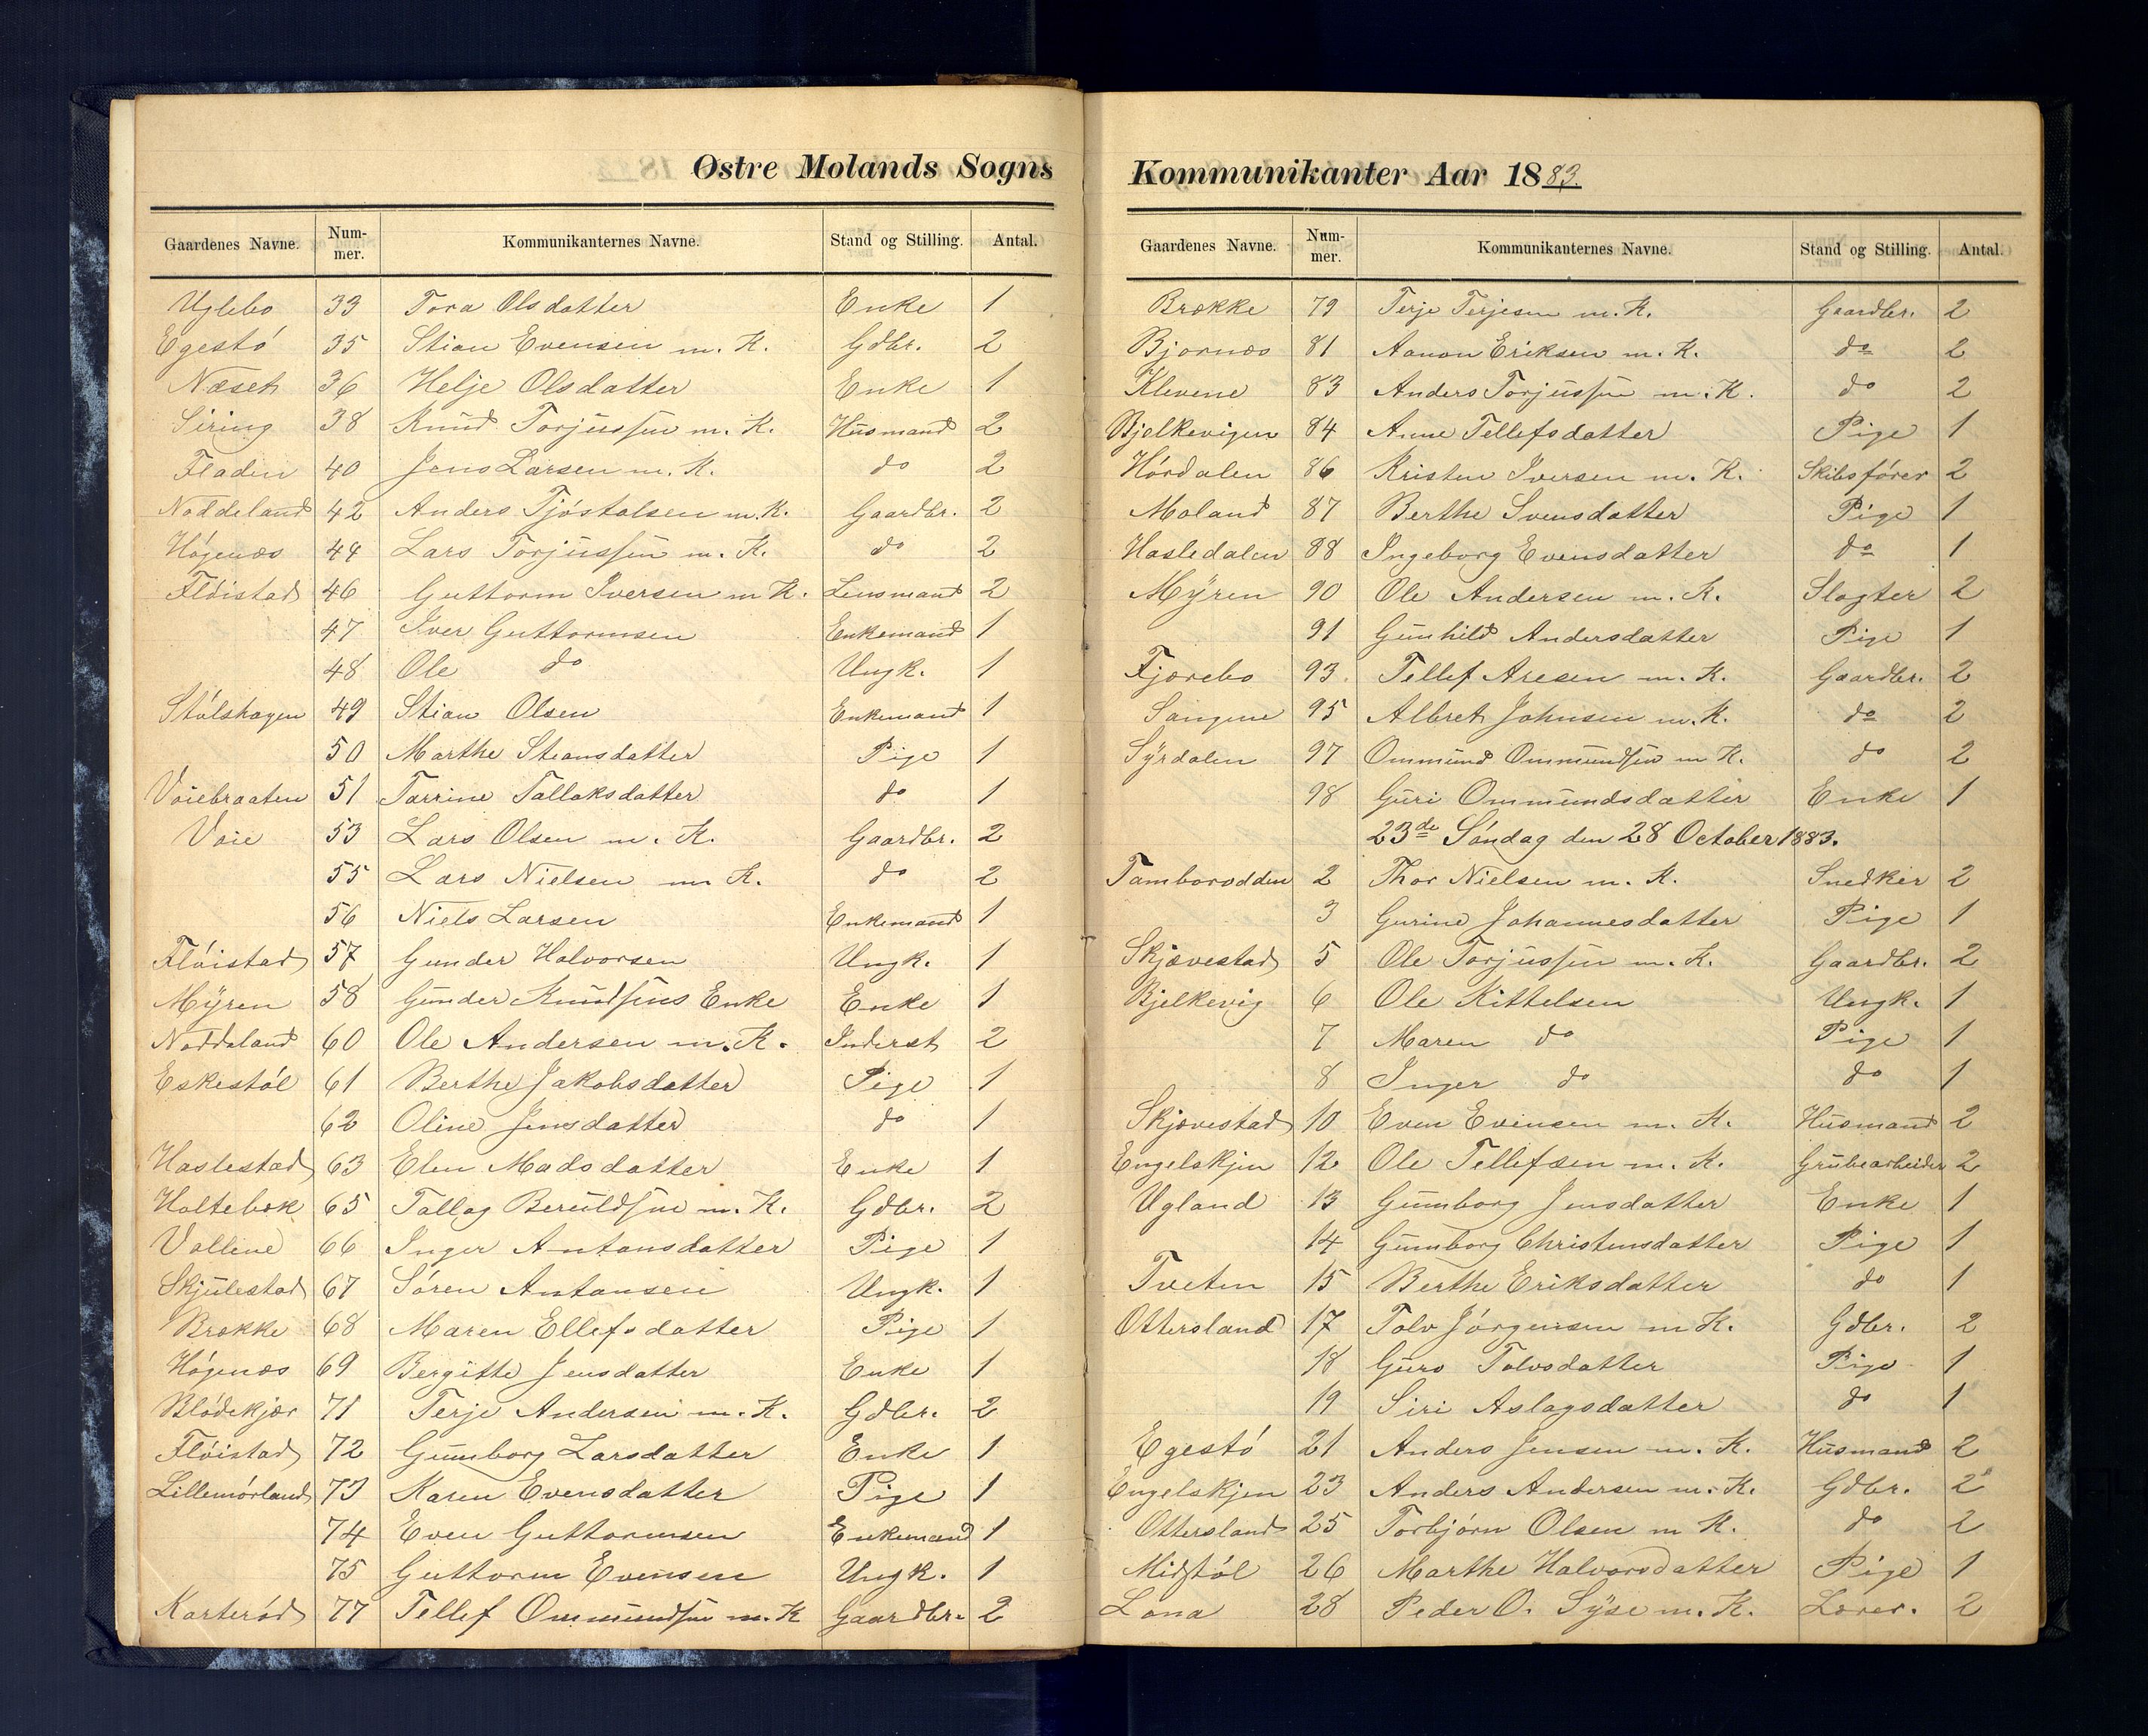 Østre Molands Sogns
Gaardenes Navne. Num-mer. Kommunikanternes Navne. Stand og Stilling. Antal.
Uglebo 33 Tora Olsdatter Enke 1
Egestö 35 Stian Evensen m. K. Gdbr. 2
Næset 36 Helje Olsdatter Enke 1
Siring 38 Knud Torjussen m. K. Husmand 2
Fladen 40 Jens Larsen m. K. do 2
Noddeland 42 Anders Tjöstolsen m. K. Gaardbr. 2
Högenæs 44 Lars Torjussen m. K. do 2
Flöistad 46 Guttorm Iversen m K. Lensmand 2
47 Iver Guttormsen Enkemand 1
48 Ole do Ungk. 1
Stölshagen 49 Stian Olsen Enkemand 1
50 Marthe Stiansdatter Pige 1
Voiebraaten 51 Torrine Tallaksdatter do 1
Voie 53 Lars Olsen m. K. Gaardbr. 2
55 Lars Nielsen m K. do 2
56 Niels Larsen Enkemand 1
Flöistad 57 Gunder Halvorsen Ungk. 1
Myren 58 Gunder Knudsens Enke Enke 1
Noddeland 60 Ole Andersen m. K. Inderst 2
Eskestöl 61 Berthe Jakobsdatter Pige 1
62 Oline Jensdatter do 1
Haslestad 63 Elen Madsdatter Enke 1
Holtebæk 65 Tallag Beruldsen m. K. Gdbr. 2
Vollene 66 Inger Antonsdatter Pige 1
Skjulestad 67 Sören Antonsen Ungk. 1
Brække 68 Maren Ellefsdatter Pige 1
Högenæs 69 Bergitte Jensdatter Enke 1
Blödekjær 71 Terje Andersen m. K. Gdbr. 2
Flöistad 72 Gunborg Larsdatter Enke 1
Lillemörland 73 Karen Evensdatter Pige 1
74 Even Guttormsen Enkemand 1
75 Guttorm Evensen Ungk. 1
Karteröd 77 Tellef Ommundsen m. K Gaardbr. 2
Kommunikanter Aar 1883.
Gaardenes Navne. Num-mer. Kommunikanternes Navne. Stand og Stilling. Antal.
Brække 79 Terje Terjesen m. K. Gaardbr. 2
Bjornæs 81 Aanon Eriksen m. K. do 2
Klevene 83 Anders Torjussen m. K. do 2
Bjelkevigen 84 Anne Tellefsdatter Pige 1
Hördalen 86 Kristen Iversen m. K. Skibsförer 2
Moland 87 Berthe Svensdatter Pige 1
Hasledalen 88 Ingeborg Evensdatter do 1
Myren 90 Ole Andersen m. K. Slagter 2
91 Gunhild Andersdatter Pige 1
Fjærebo 93 Tellef Aresen m. K. Gaardbr. 2
Sangene 95 Albret Johnsen m. K. do 2
Syrdalen 97 Ommund Ommundsen m K. do 2
98 Guri Ommundsdatter Enke 1
23de Söndag den 28 October 1883.
Tamborodden 2 Thor Nielsen m. K. Snedker 2
3 Gurine Johannesdatter Pige 1
Skjævestad 5 Ole Torjussen m. K. Gaardbr. 2
Bjelkevig 6 Ole Kittelsen Ungk. 1
7 Maren do Pige 1
8 Inger do do 1
Skjævestad 10 Even Evensen m. K. Husmand 2
Engelskjen 12 Ole Tellefsen m. K. Grubearbeider 2
Ugland 13 Gunborg Jensdatter Enke 1
14 Gunborg Christensdatter Pige 1
Tveten 15 Berthe Eriksdatter do 1
Ottersland 17 Tolv Jörgensen m K. Gdbr. 2
18 Guro Tolvsdatter Pige 1
19 Siri Aslagsdatter do 1
Egestö 21 Anders Jensen m. K. Husmand 2
Engelskjen 23 Anders Andersen m. K. Gdbr. 2
Ottersland 25 Torbjörn Olsen m K. do 2
Midstöl 26 Marthe Halvorsdatter Pige 1
Lona 28 Peder O. Syse m. K. Lærer. 2